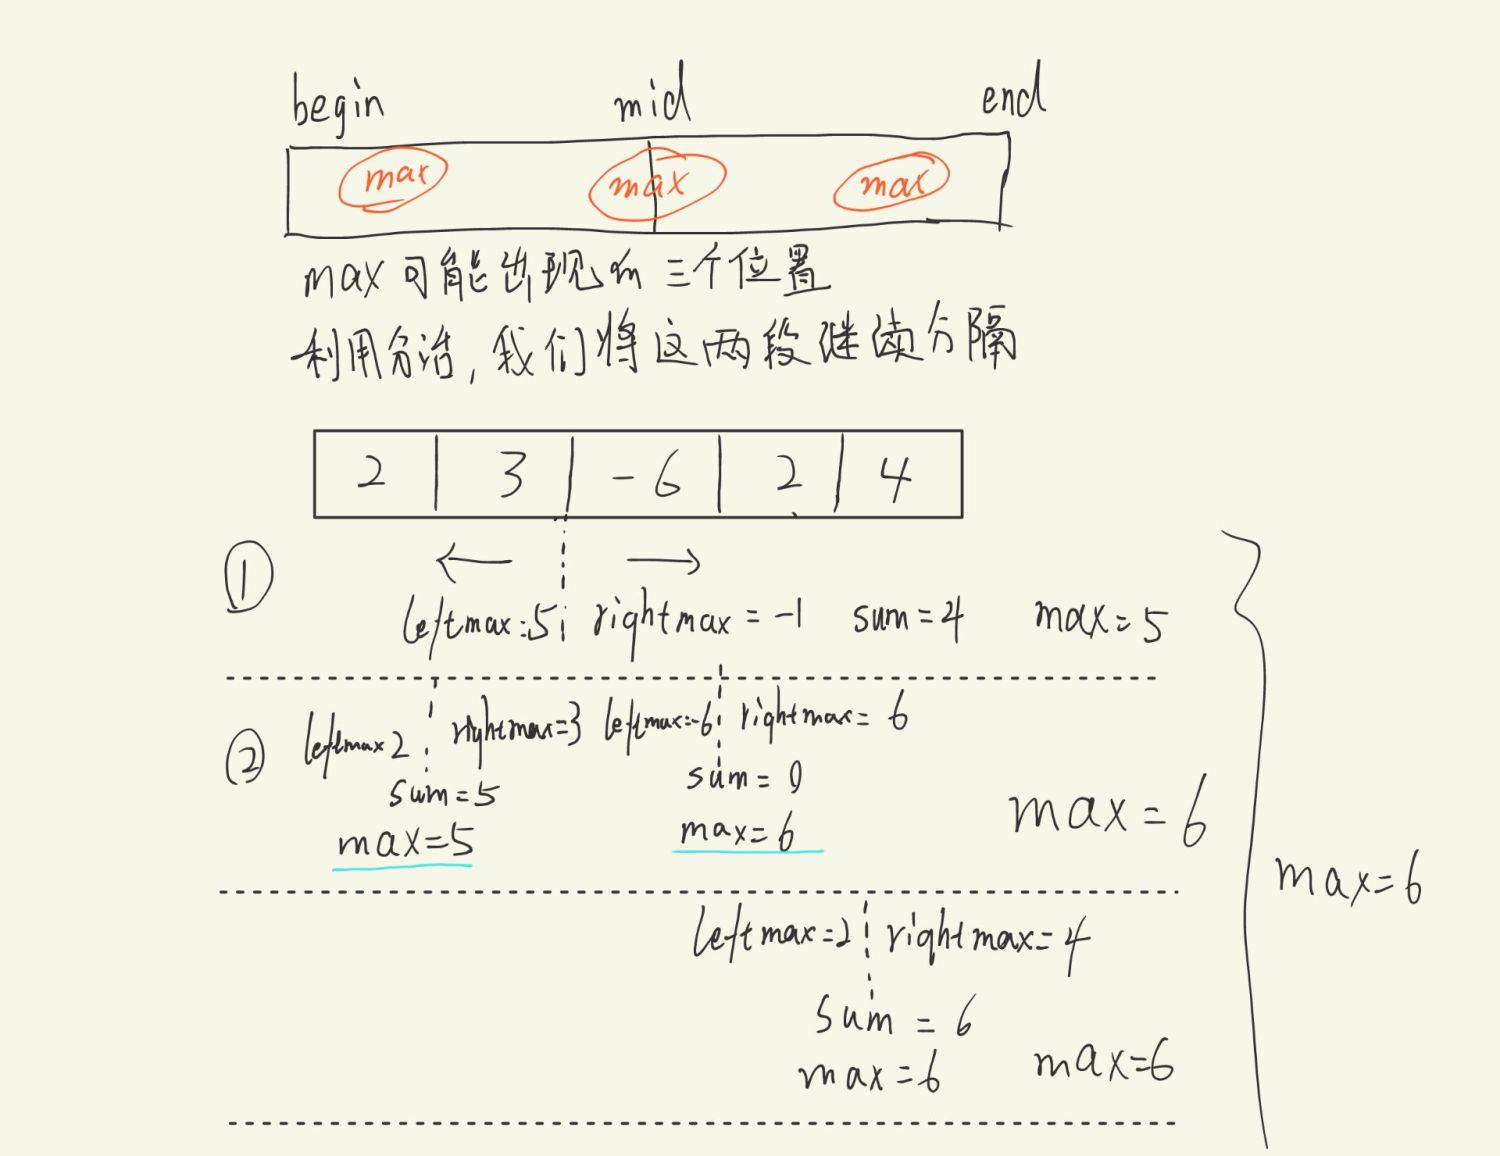 begin mid end
max max max
max可能出现在三个位置
利用分治,我们将这两段继续分隔
2 3 -6 2 4
① leftmax=5 rightmax=-1 sum=4 max=5
② leftmax 2 rightmax=3 leftmax=-6 rightmax=6
sum=5 sum=0
max=5 max=6 max=6
max=6
leftmax=2 rightmax=4
sum=6
max=6 max=6